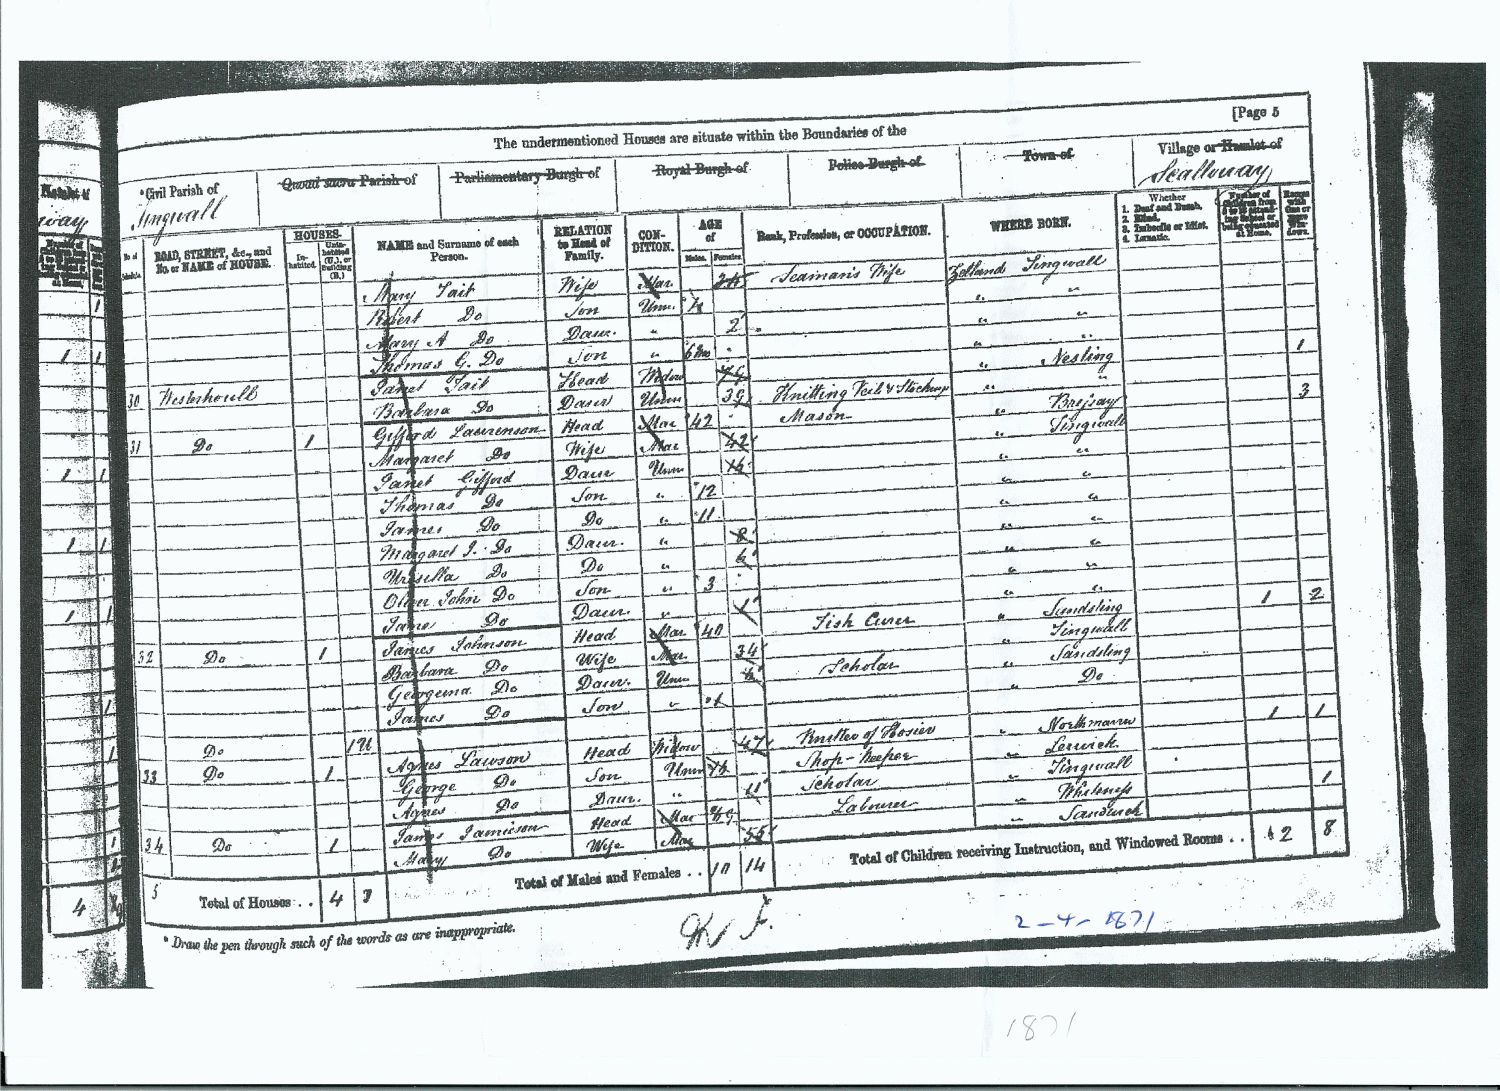 [Page 5
The undermentioned Houses are situate within the Boundaries of the
*Civil Parish of Tingwall
Quoad sacra Parish of
Parliamentary Burgh of
Royal Burgh of
Police Burgh of
Town of
Village or Hamlet of Scalloway
No. of Schedule
ROAD, STREET, &c., and No. or NAME of HOUSE.
HOUSES.
Inhabited
Uninhabited (U.), or Building (B.)
NAME and Surname of each Person.
RELATION to Head of Family.
CONDITION.
AGE of
Males. Females.
Rank, Profession, or OCCUPATION.
WHERE BORN.
Whether
1. Deaf and Dumb.
2. Blind.
3. Imbecile or Idiot.
4. Lunatic.
Mary Tait Wife Mar Seaman's Wife Zetland Tingwall
Robert Do Son Unm. 4 " "
Mary A Do Daur. " 2 " "
Thomas G. Do Son " 6 mo " "
30 Westerhoull Janet Tait Head Widow " Nesting 1
Barbara Do Daur Unm 39 Knitting Veils & Stockings " "
31 Do 1 Gifford Laurenson Head Mar 42 Mason " Bressay 3
Margaret Do Wife Mar 42 " Tingwall
Janet Gifford Daur Unm 15 " "
Thomas Do Son " 12 " "
James Do Do " 11 " "
Margaret J. Do Daur. " 8 " "
Ursilla Do Do " " "
Oliver John Do Son " 3 " "
Do Daur. " 1 " "
32 Do 1 James Johnson Head Mar 40 Fish Curer " Sandsting 1 2
Barbara Do Wife Mar. 34 " Tingwall
Georgina Do Daur. Unm Scholar " Sandsting
James Do Son " 1 " Do
Do 1 U
33 Do 1 Agnes Lawson Head Widow 47 Knitter of Hosiery " Northmavine 1 1
George Do Son Unm Shop-Keeper " Lerwick
Agnes Do Daur. " 11 Scholar " Tingwall
34 Do 1 James Jamieson Head Mar Labourer " Whiteness 1
Mary Do Wife Mar 55 " Sandwick
5 Total of Houses .. 4
Total of Males and Females .. 10 14
Total of Children receiving Instruction, and Windowed Rooms .. 2 8
* Draw the pen through such of the words as are inappropriate.
2-4-1871
1871